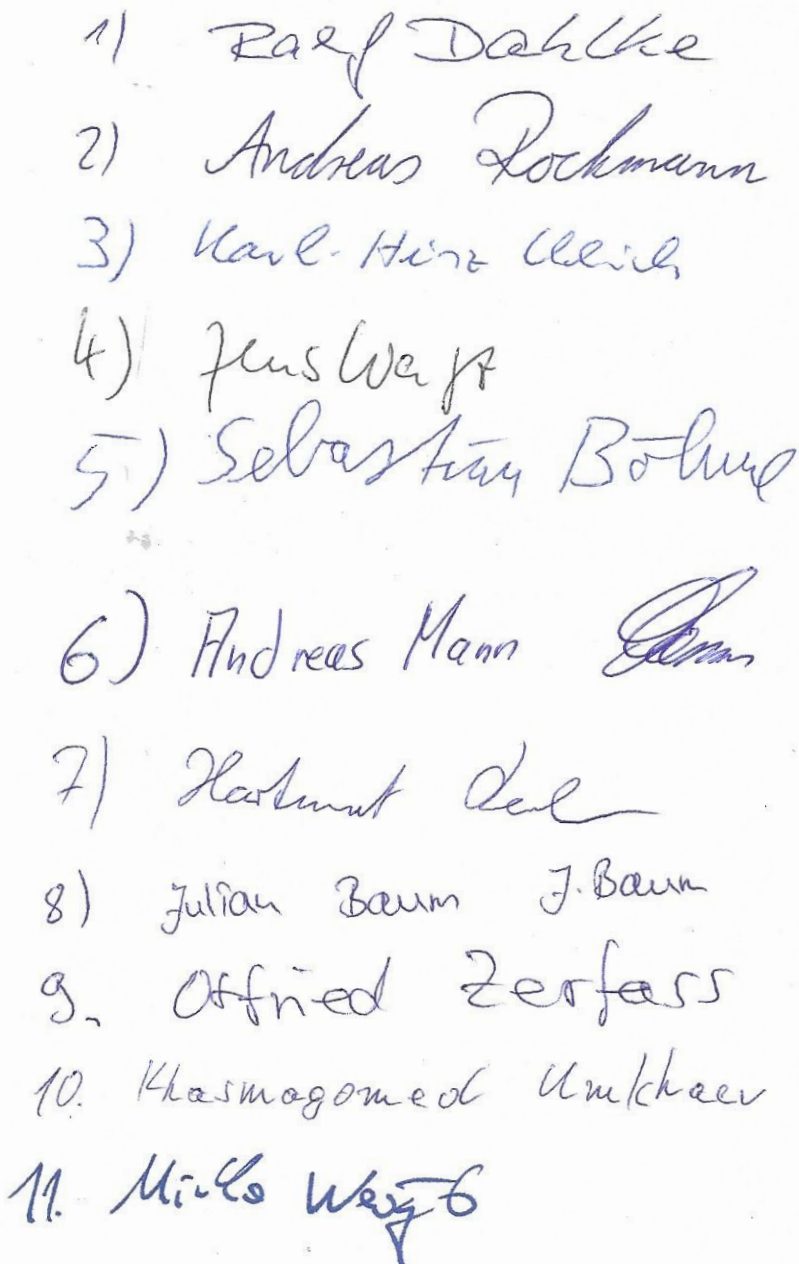 1) Ralf Dahlke
2) Andreas Rockmann
3) Karl-Heinz Ulrich
4) Jens
5) Sebastian Böhme
6) Andreas Mann
7) Hartmut
8) Julian Baum J. Baum
9. Otfried Zerfass
10. Khasmagomed Umkhaev
11. Mirko